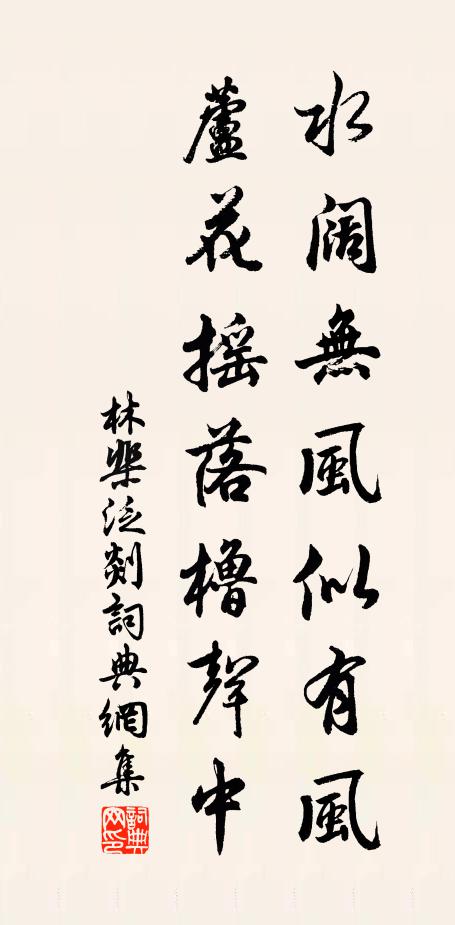 水闊無風似有風
蘆花摇落櫓聲中
林㮚泛剡詞典網集
詞典网印